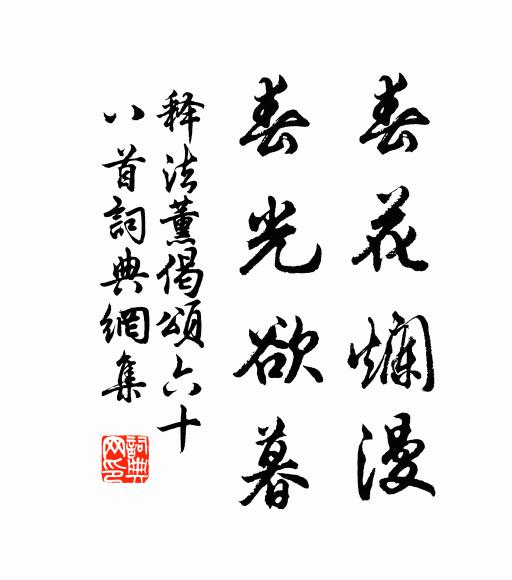 春花爛漫
春光欲暮
释法薰偈頌六十
八首詞典網集
詞典
网印